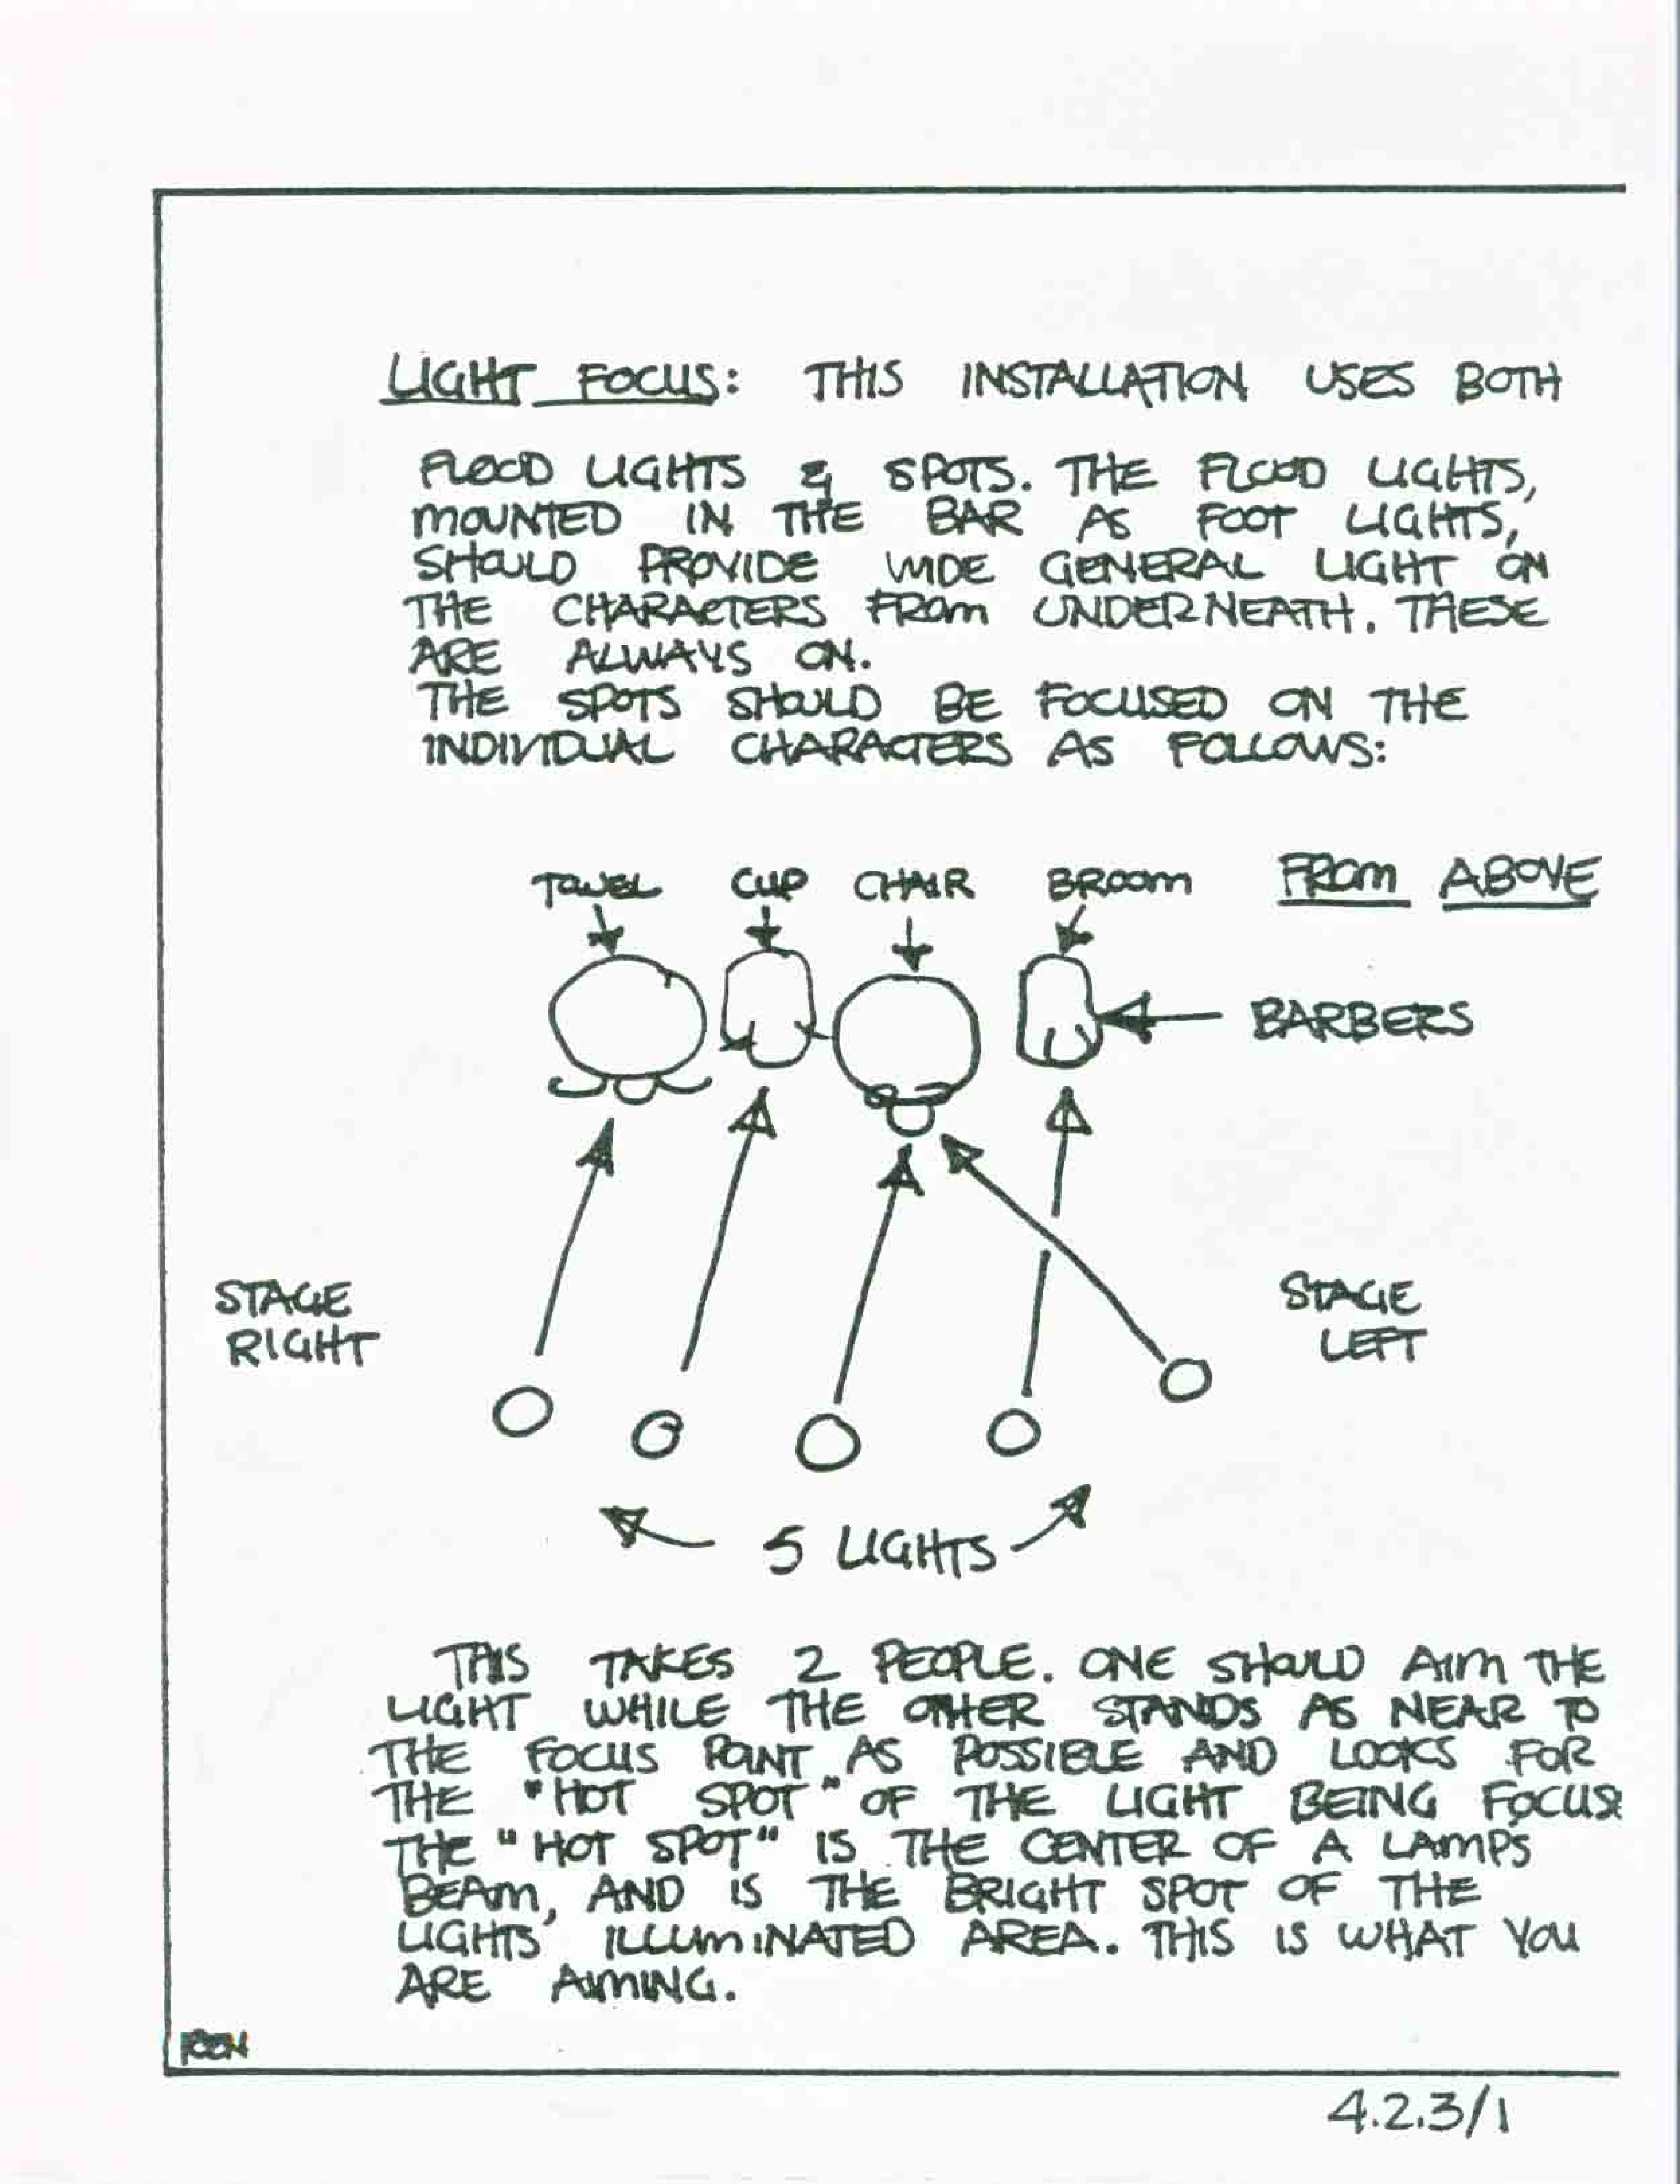 LIGHT FOCUS: THIS INSTALLATION USES BOTH
FLOOD LIGHTS & SPOTS. THE FLOOD LIGHTS,
MOUNTED IN THE BAR AS FOOT LIGHTS,
SHOULD PROVIDE WIDE GENERAL LIGHT ON
THE CHARACTERS FROM UNDERNEATH. THESE
ARE ALWAYS ON.
THE SPOTS SHOULD BE FOCUSED ON THE
INDIVIDUAL CHARACTERS AS FOLLOWS:
TOWEL CUP CHAIR BROOM FROM ABOVE
BARBERS
STAGE
RIGHT
STAGE
LEFT
5 LIGHTS
THIS TAKES 2 PEOPLE. ONE SHOULD AIM THE
LIGHT WHILE THE OTHER STANDS AS NEAR TO
THE FOCUS POINT AS POSSIBLE AND LOOKS FOR
THE "HOT SPOT" OF THE LIGHT BEING FOCUS
THE "HOT SPOT" IS THE CENTER OF A LAMPS
BEAM, AND IS THE BRIGHT SPOT OF THE
LIGHTS' ILLUMINATED AREA. THIS IS WHAT YOU
ARE AIMING.
4.2.3/1